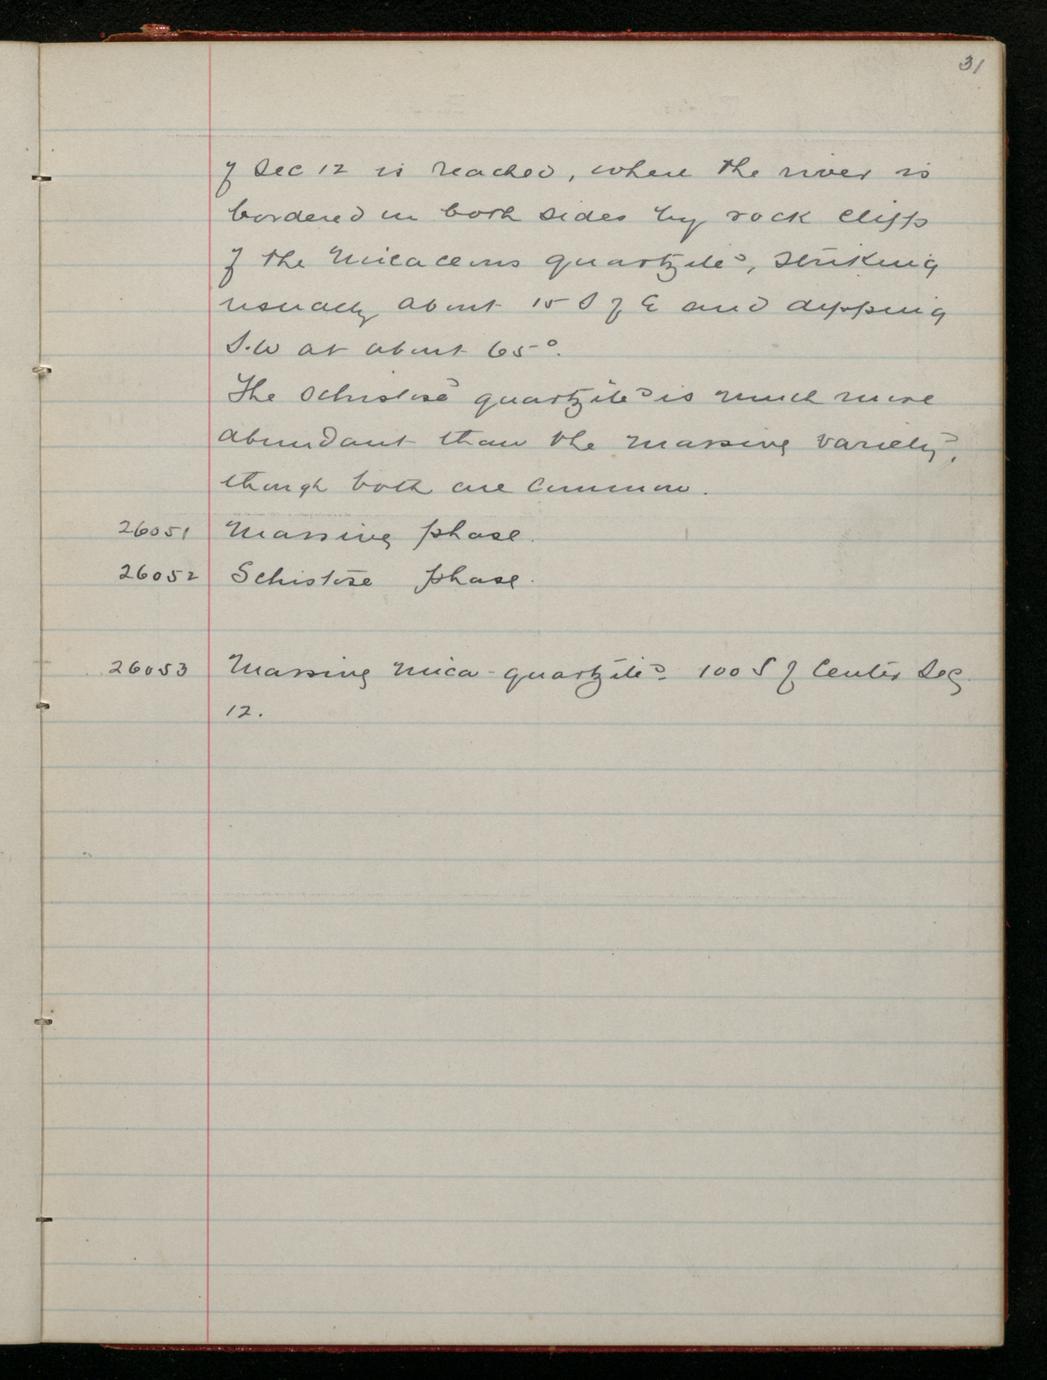 31
of Sec 12 is reached, where the river is
bordered on both sides by rock cliffs
of the micaceous quartzite, striking
usually about 15 S of E and dipping
S.W at about 65°.
The schistose quartzite is much more
abundant than the massive variety,
though both are common.
26051 Massive phase.
26052 Schistose phase.
26053 Massive mica-quartzite. 100 S of Center Sec
12.